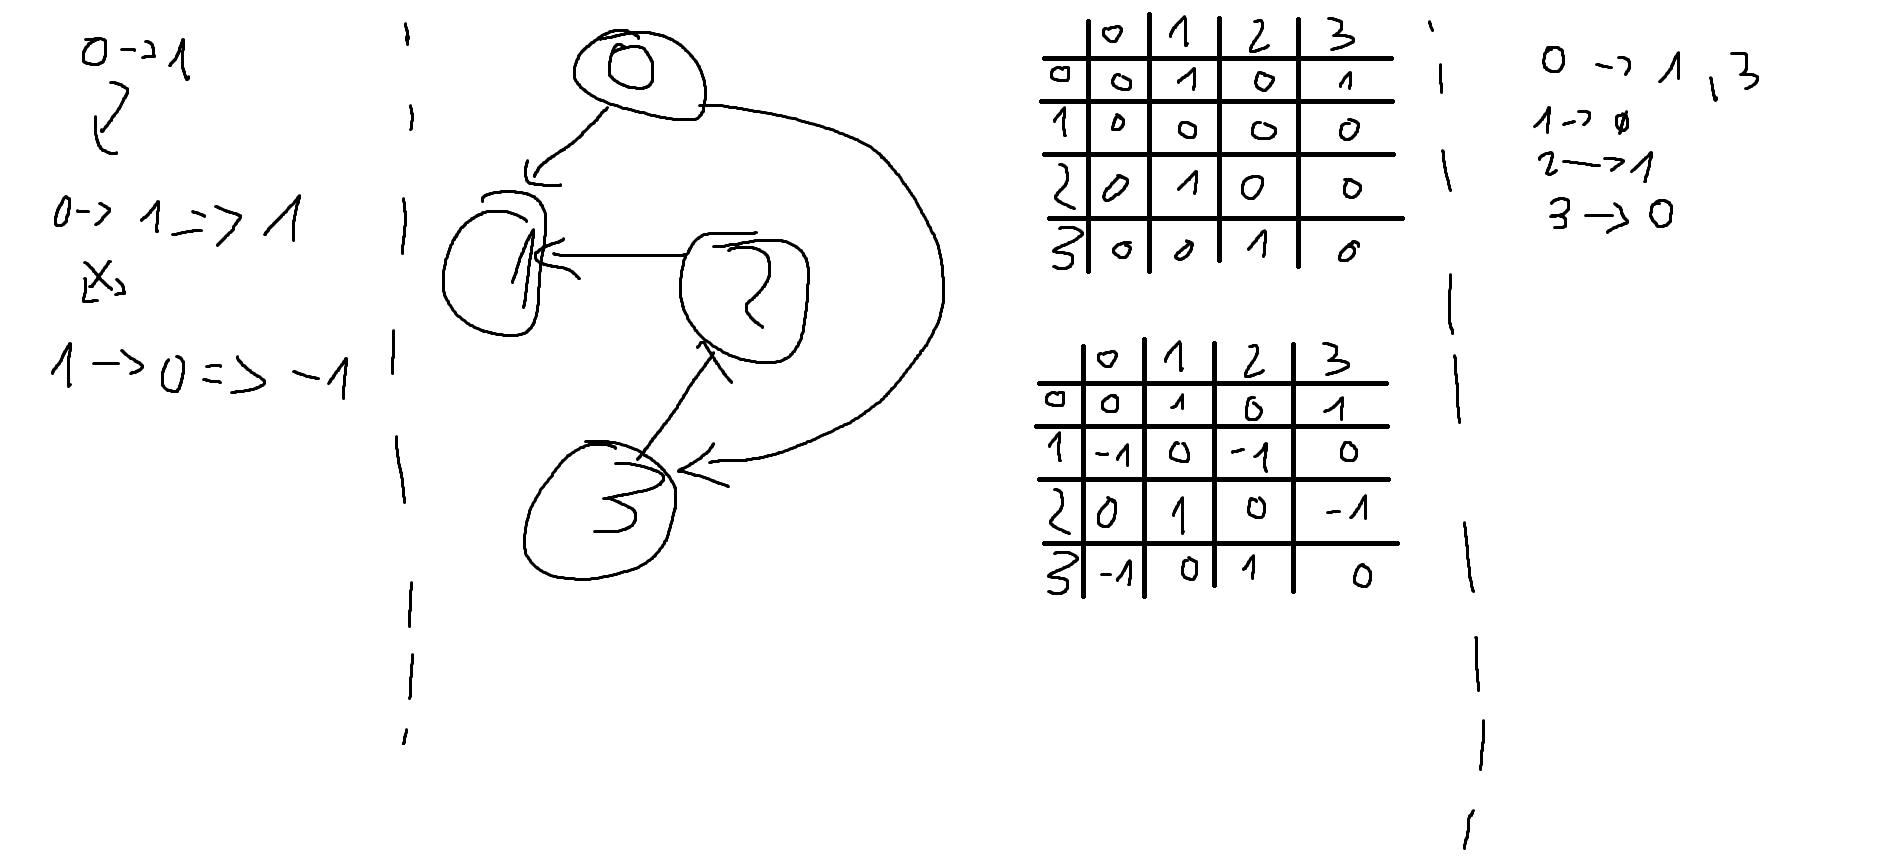 0 -> 1
0 -> 1 => 1
1 -> 0 => -1
0
1
2
3
0 1 2 3
0 0 1 0 1
1 0 0 0 0
2 0 1 0 0
3 0 0 1 0
0 1 2 3
0 0 1 0 1
1 -1 0 -1 0
2 0 1 0 -1
3 -1 0 1 0
0 -> 1, 3
1 -> ø
2 -> 1
3 -> 0